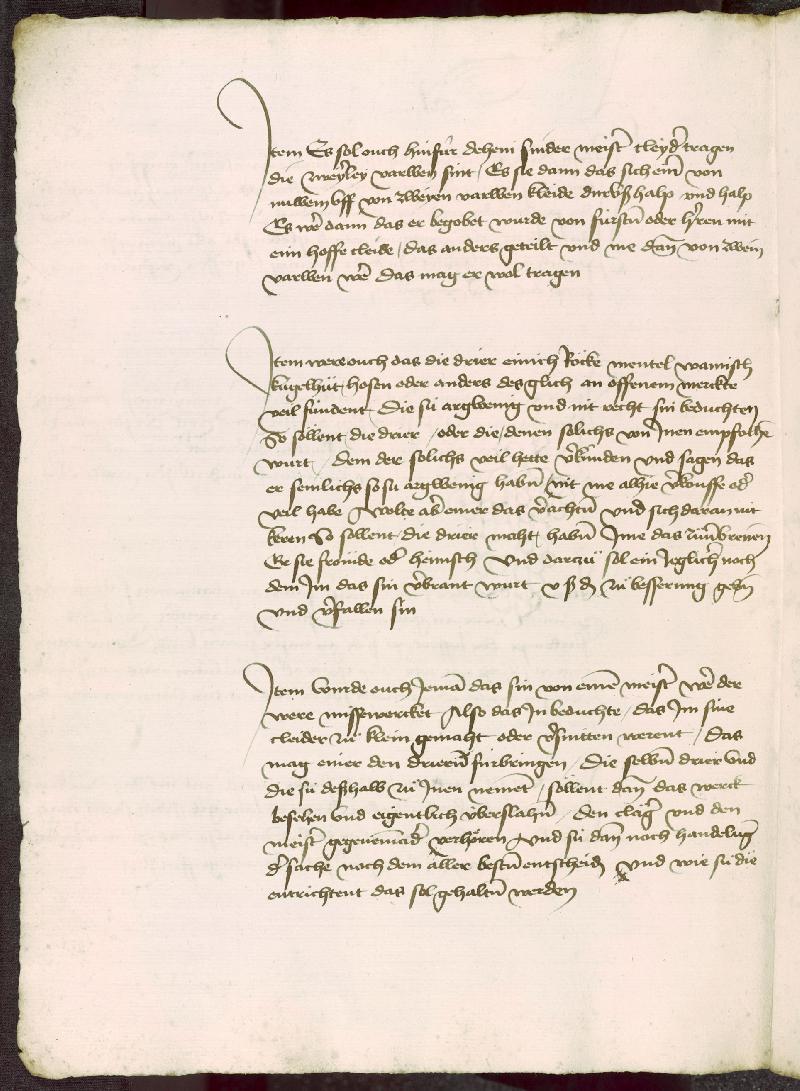 Item Es sol ouch hinfúr dehein snider meist̃ cleyd̃ tragen
die zweyẽley varwen sint / Es sie dann das sich ein̄ von
nuwem vff von zweyen varwen kleide durvß halp vnd halp
Es wẽ dann das er begobet wurde von fúrstn̄ oder hr̃ren mit
eim hoffe cleide / das anders geteilt vnd me dañ von zwein
varwen wẽ das mag er wol tragen
Item were ouch das die drier einich Röcke mentel wamisch
kugelhút hosen oder anders desglich an offenem merckte
veil fúndent Die sú argwenig vnd nit recht sin beduchten
So sollent die drier / oder die / denen solichs von Inen empfolhẽ
wurt / dem der solichs veil hette v̾kúnden vnd sagen das
er semlichs so sú argwenig habn̄ nit me alhie v̾kouffe od̾
veil habe Wolte ab̾ einer das v̾achtn̄ vnd sich daran nit
keren So sollent die drier maht habn̄ Ime das zúu̾brennen
Er sie frömde od̾ heimsch Vnd darzú sol ein Jeglich̾ noch
dem Im das sin v̾brant wurt v ß d̾ zú besserung gebn̄
vnd v̾fallen sin
Item Wurde ouch Jemā das sin von eim̄ meist̾ wẽ der
were missewercket Also das In beduchte / das Im sine
cleider zú klein gemaht oder v̾snitten werent / Das
mag einer den drieren̄ fúrbringen / Die selbn̄ drier vnd
die sú deßhalb zú Inen nement / sollent dañ das werck
besehen vnd eigentlich v̾berslahn̄ / den clag̾ vnd den
meist̾ gegeneinād̾ verhören Vnd sú dañ noch handelũg
d̾ sache noch dem aller bestn̄ entscheidn̄ Vnd wie sú die
entrichtent das sol gehaltn̄ werden